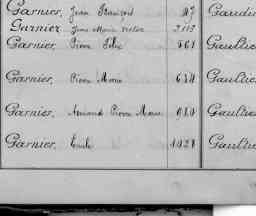 Garnier, Jean François 27 Gaudin
Garnier Jean Marie Victor
Garnier, Pierre Félix 561 Gaultier
Garnier, Pierre Marie 634 Gaultier
Garnier, Armand Pierre Marie 980 Gaultier
Garnier, Émile 1027 Gaultier